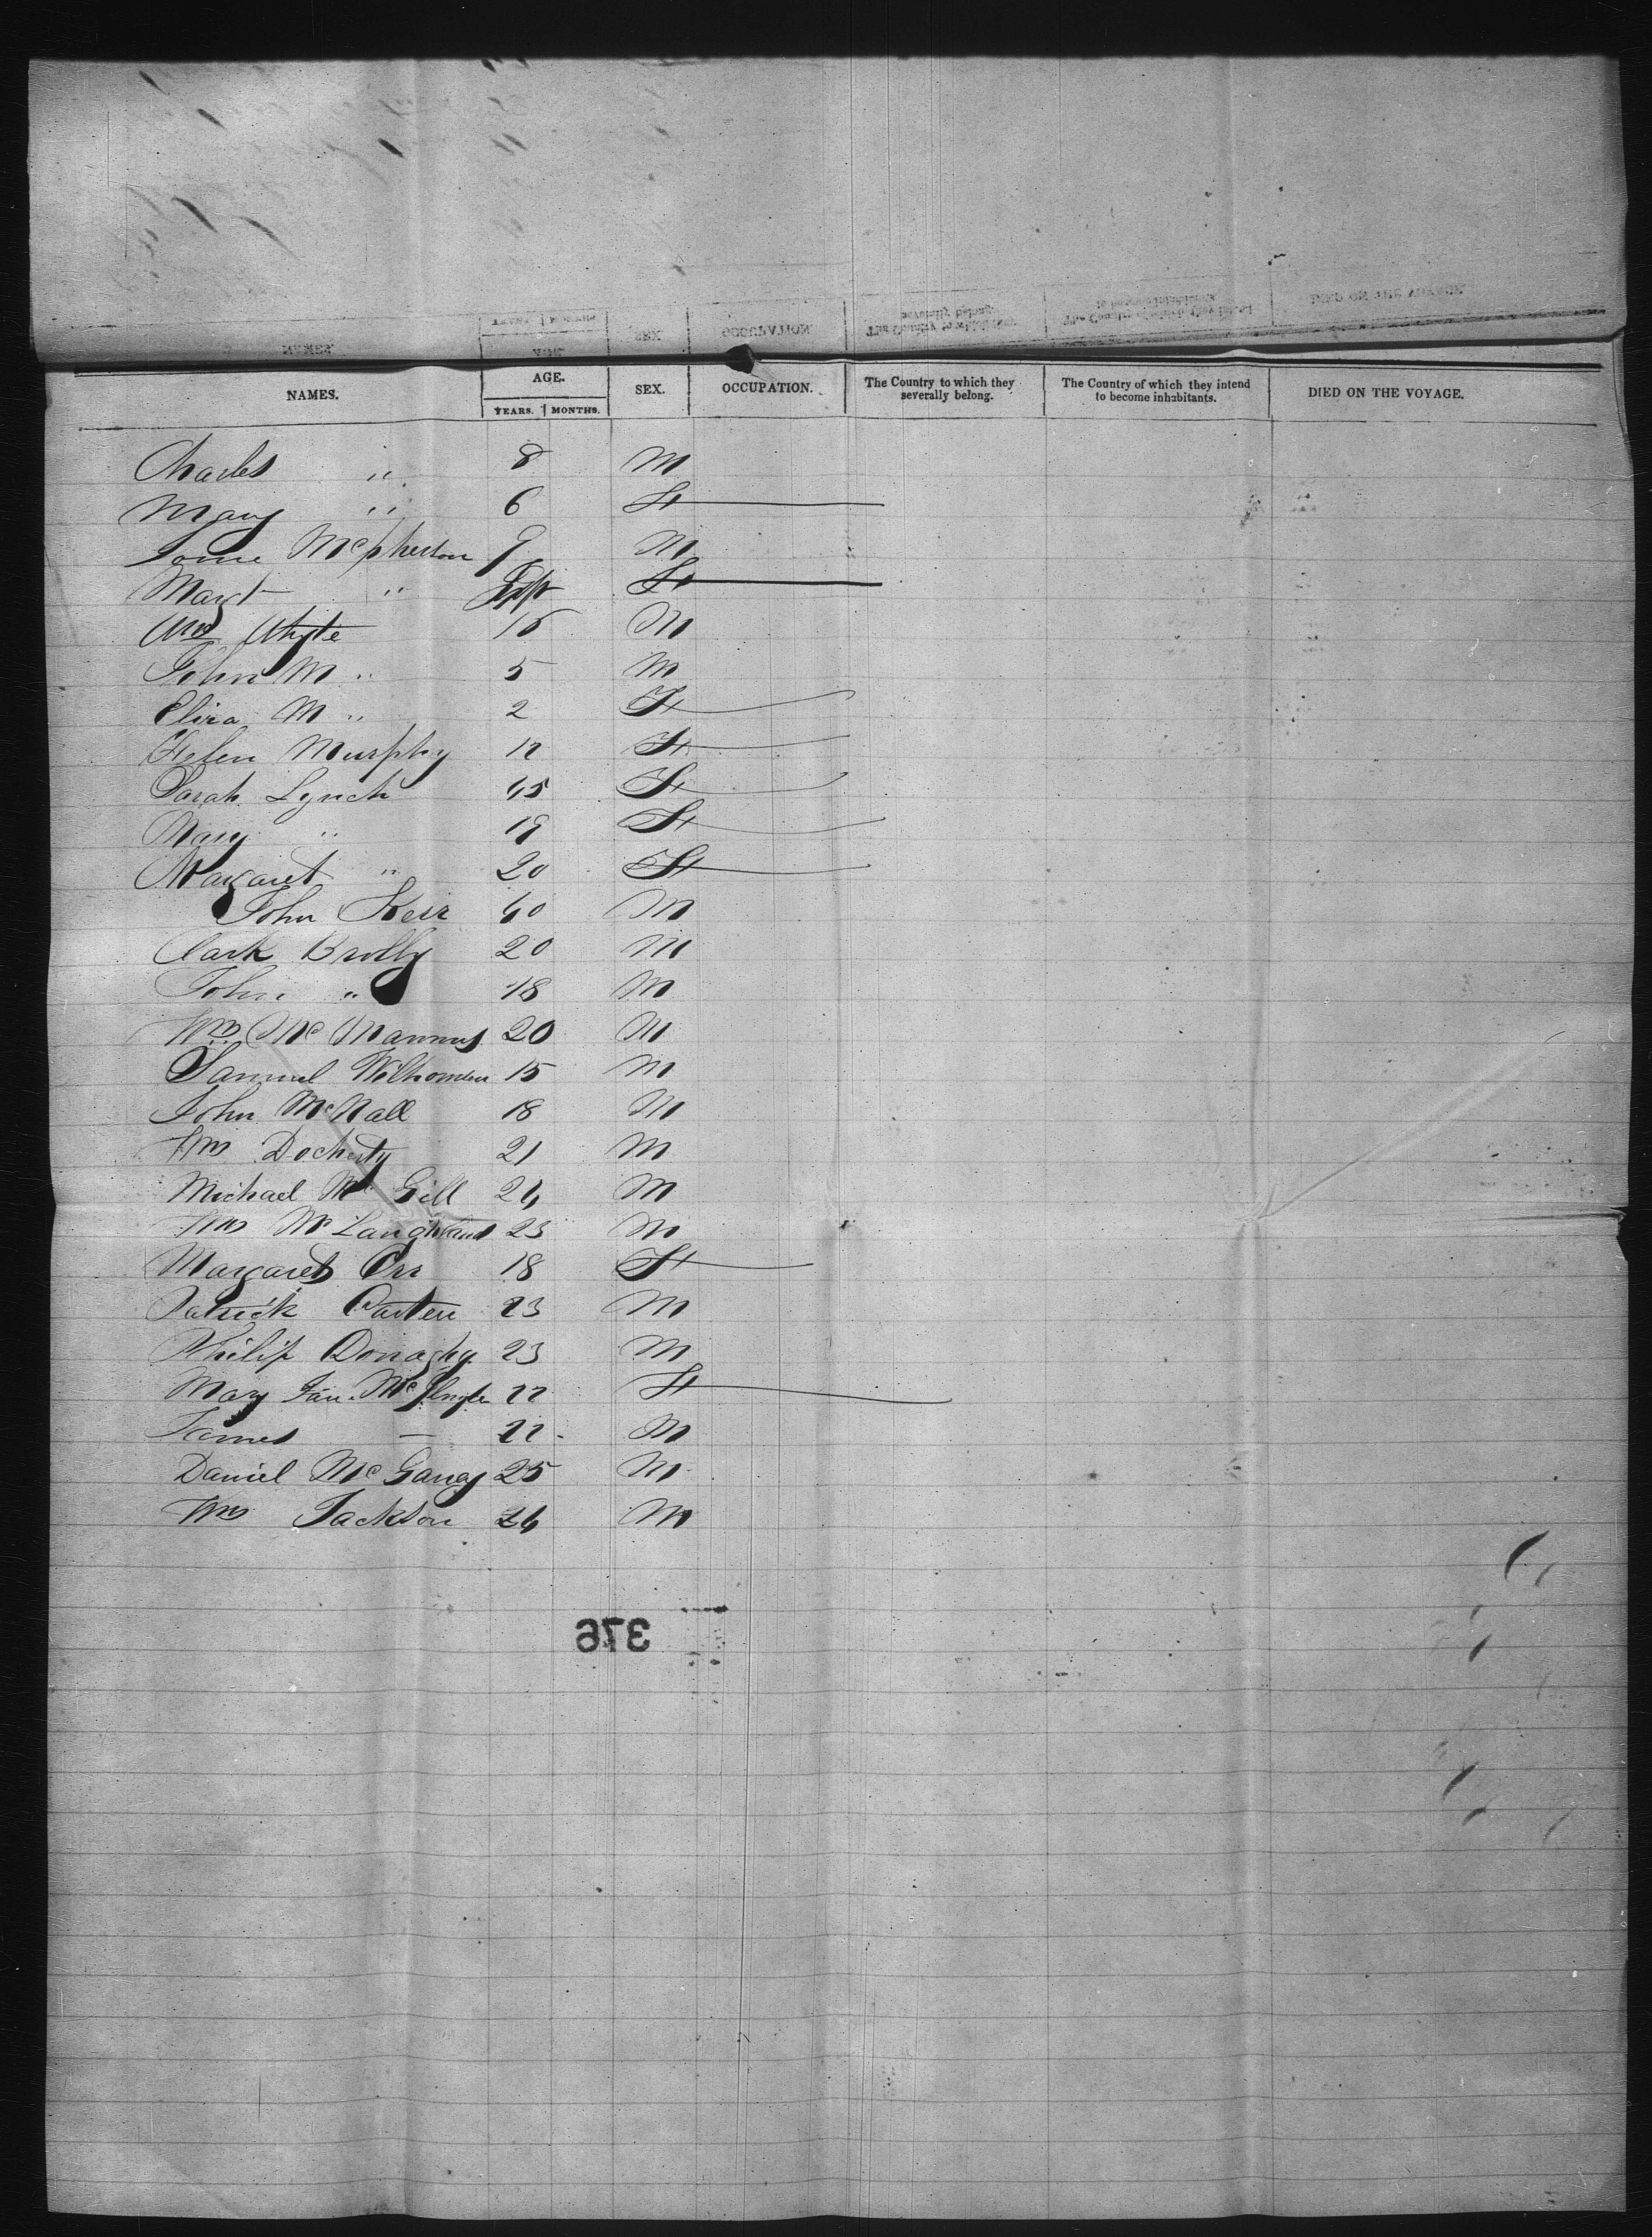 NAMES. AGE. YEARS. MONTHS. SEX. OCCUPATION. The Country to which they severally belong. The Country of which they intend to become inhabitants. DIED ON THE VOYAGE.
Charles " 8 M
Mary " 6 F
McPherson 9 M
Margt " Inft F
Wm Whyte 16 M
John M " 5 M
Eliza M " 2 F
Helen Murphy 12 F
Sarah Lynch 45 F
Mary " 19 F
Margaret " 20 F
John Kerr 40 M
Clark Brolly 20 M
John " 18 M
Wm Mc Mannus 20 M
Samuel 15 M
John McNall 18 M
Wm Docherty 21 M
Michael Mc Gill 24 M
Wm Mc 23 M
Margaret Orr 18 F
Patrick 23 M
Philip Donaghy 23 M
Mary Jane 22 F
James — 22 M
Daniel 25 M
Wm Jackson 24 M
376